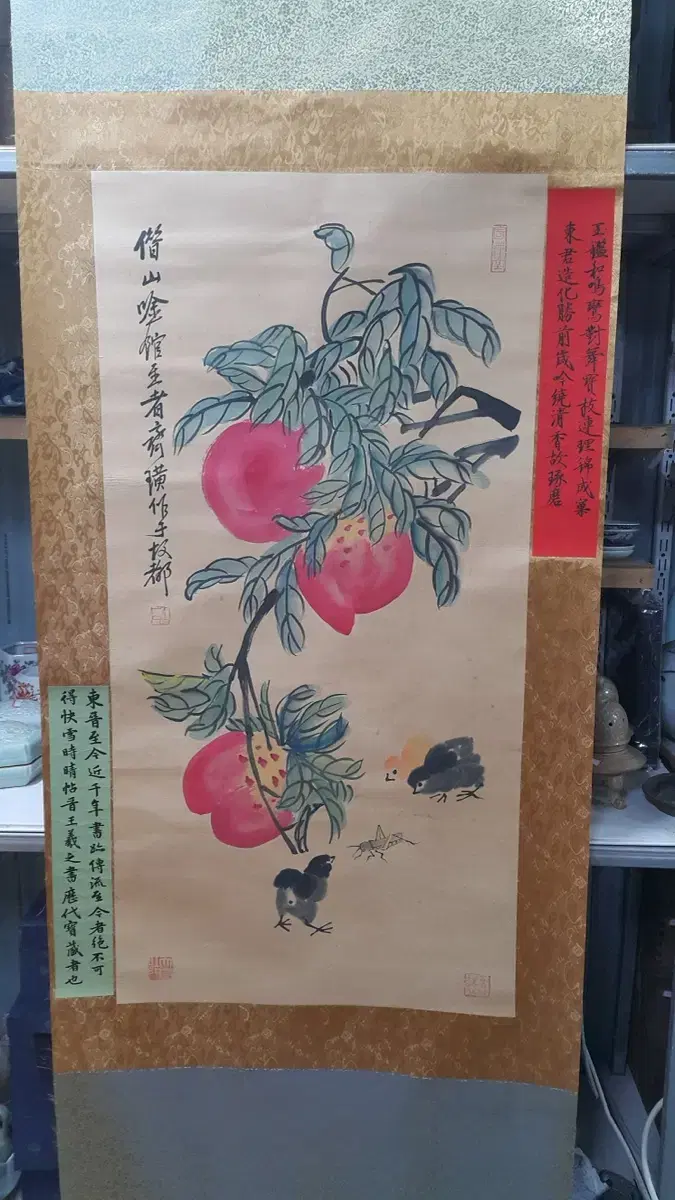 玉檻和鳴鸞對舞寶枝連理錦成窠
東君造化勝前歲吟繞清香故琢磨
借山唫館主者齊璜作于故都
東晉至今近千年書跡傳流至今者絕不可
得快雪時晴帖晉王羲之書歷代寶藏者也